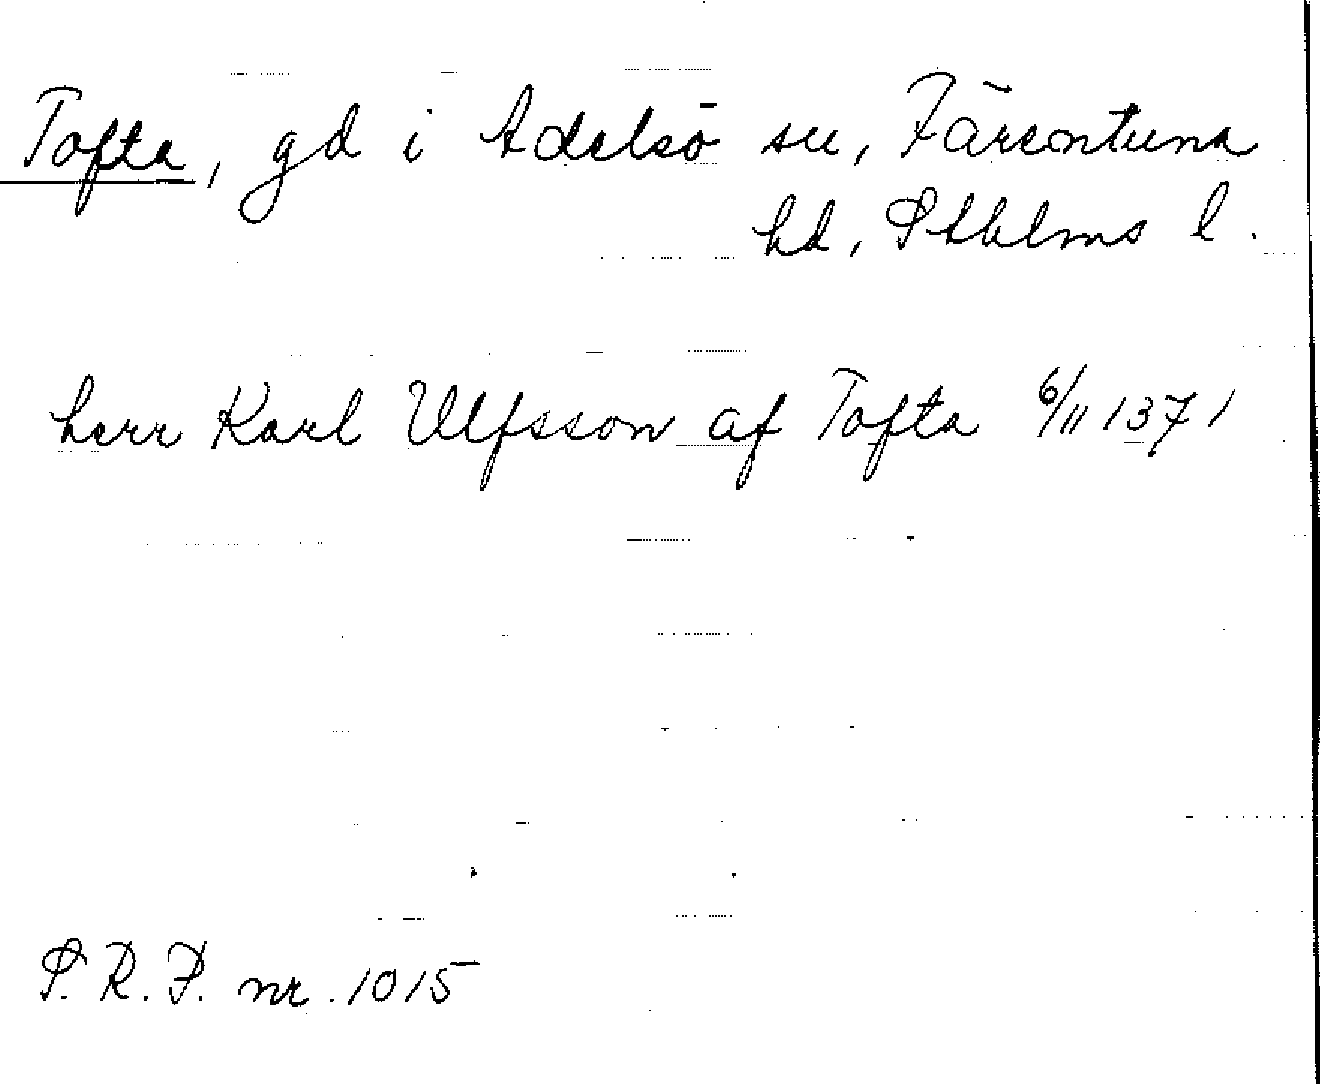 Tofta, gd i Adelsö sn, Färentuna
hd, Sthlms l.
herr Karl Ulfsson af Tofta 6/11 1371
S. R. P. nr. 1015